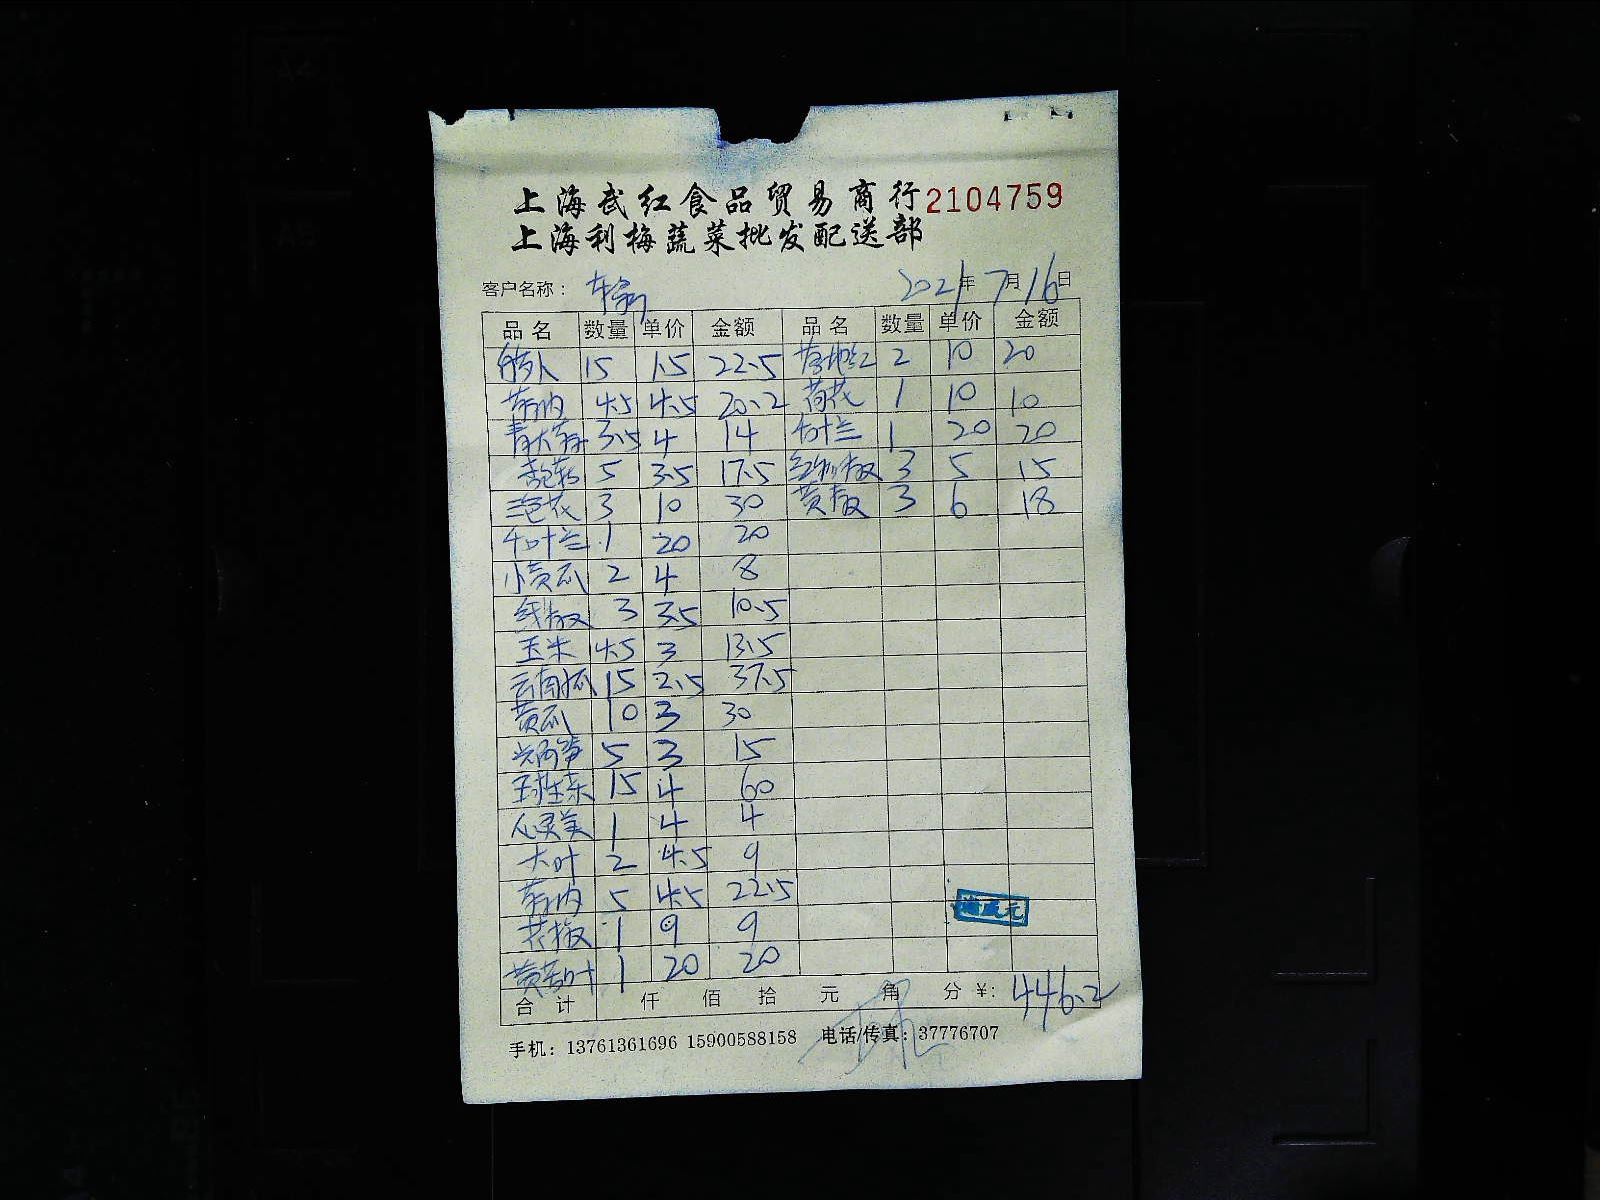 上海武红食品贸易商行 2104759
上海利梅蔬菜批发配送部
客户名称： 2021年7月16日
品名 数量 单价 金额 品名 数量 单价 金额
15 1.5 22.5 2 10 20
4.5 4.5 20.2 荷花 1 10 10
3.5 4 14 千叶兰 1 20 20
5 3.5 17.5 3 5 15
三色花 3 10 30 黄椒 3 6 18
千叶兰 1 20 20
小黄瓜 2 4 8
线椒 3 3.5 10.5
玉米 4.5 3 13.5
云南瓜 15 2.5 37.5
黄瓜 10 3 30
5 3 15
球生菜 15 4 60
心灵美 1 4 4
大叶 2 4.5 9
5 4.5 22.5
花椒 1 9 9
1 20 20
合计 仟 佰 拾 元 角 分 ¥: 446.2
手机：13761361696 15900588158 电话/传真：37776707